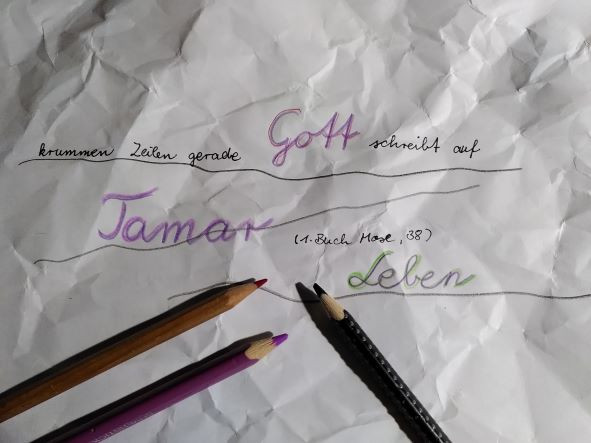 krummen Zeilen gerade Gott schreibt auf
Tamar (1. Buch Mose, 38)
Leben